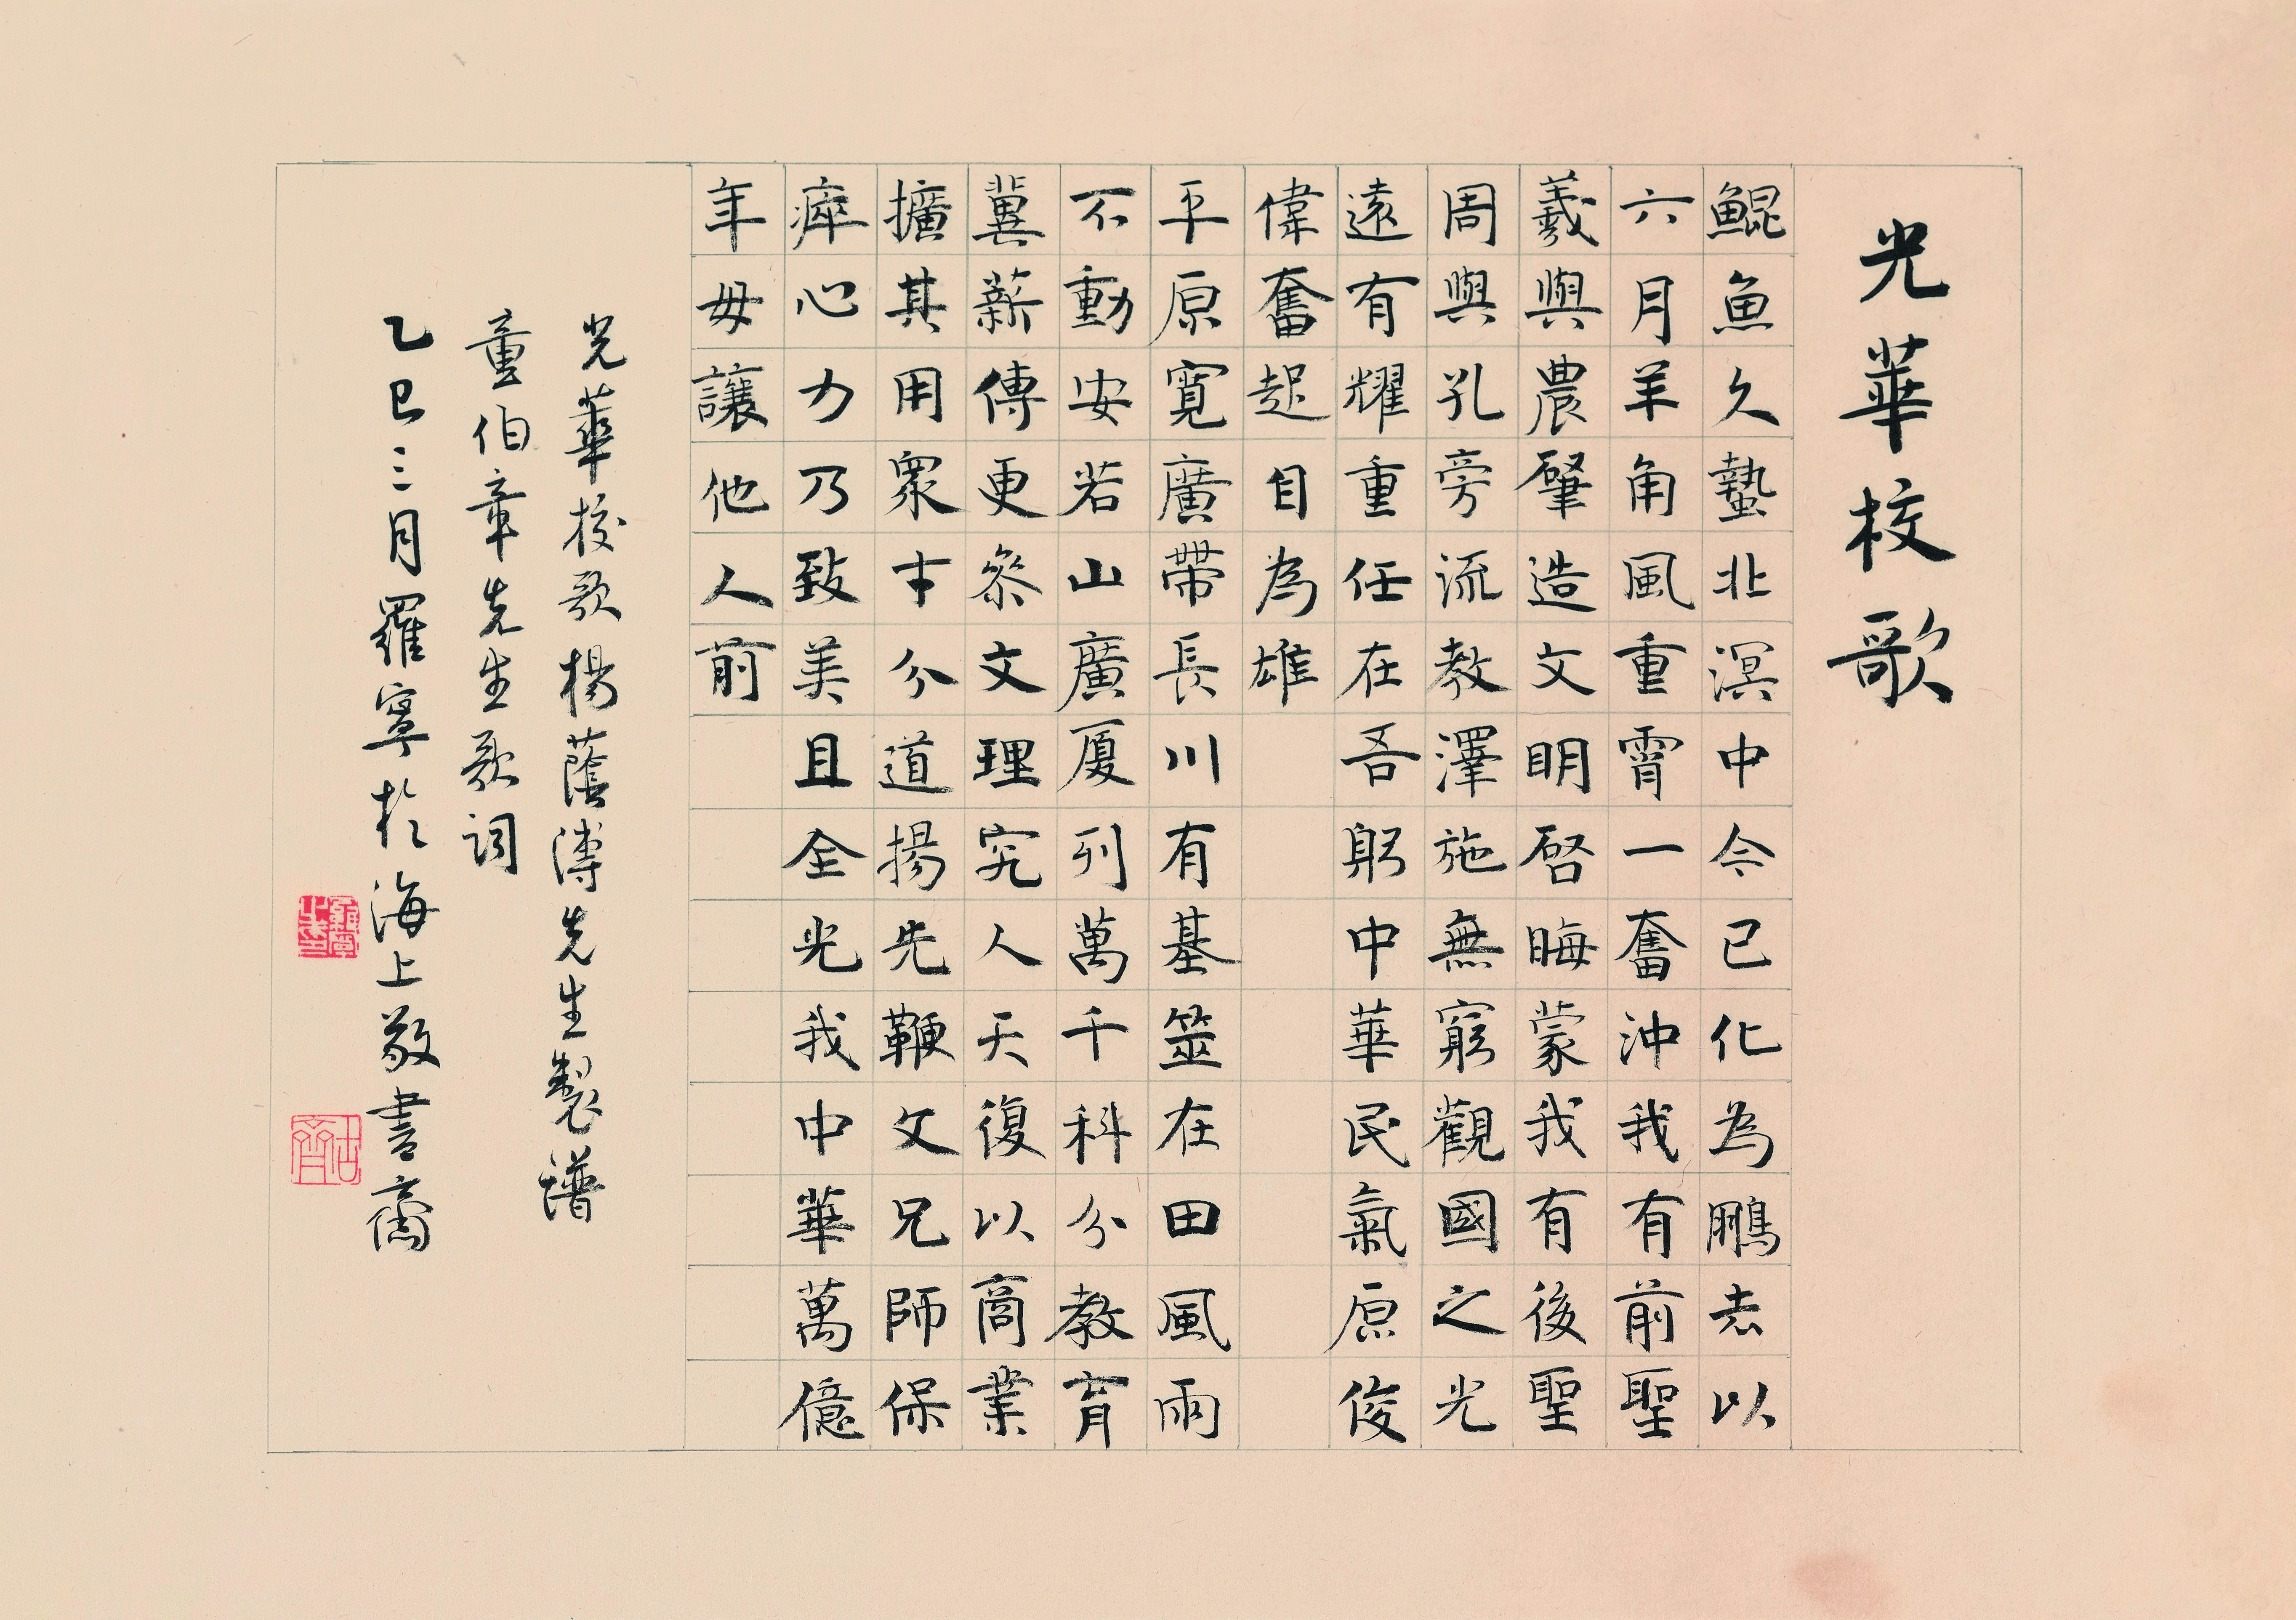 光華校歌
鯤魚久蟄北溟中今已化為鵬志以
六月羊角風重霄一奮沖我有前聖
羲與農肇造文明啓晦蒙我有後聖
周與孔旁流教澤施無窮觀國之光
遠有耀重任在吾躬中華民氣原俊
偉奮起自為雄
平原寬廣帶長川有基筮在田風雨
不動安若山廣厦列萬千科分教育
冀薪傳更參文理究人天復以商業
擴其用眾才分道揚先鞭父兄師保
瘁心力乃致美且全光我中華萬億
年毋讓他人前
光華校歌楊蔭溥先生製譜
童伯章先生歌詞
乙巳三月羅寧於海上敬書齋